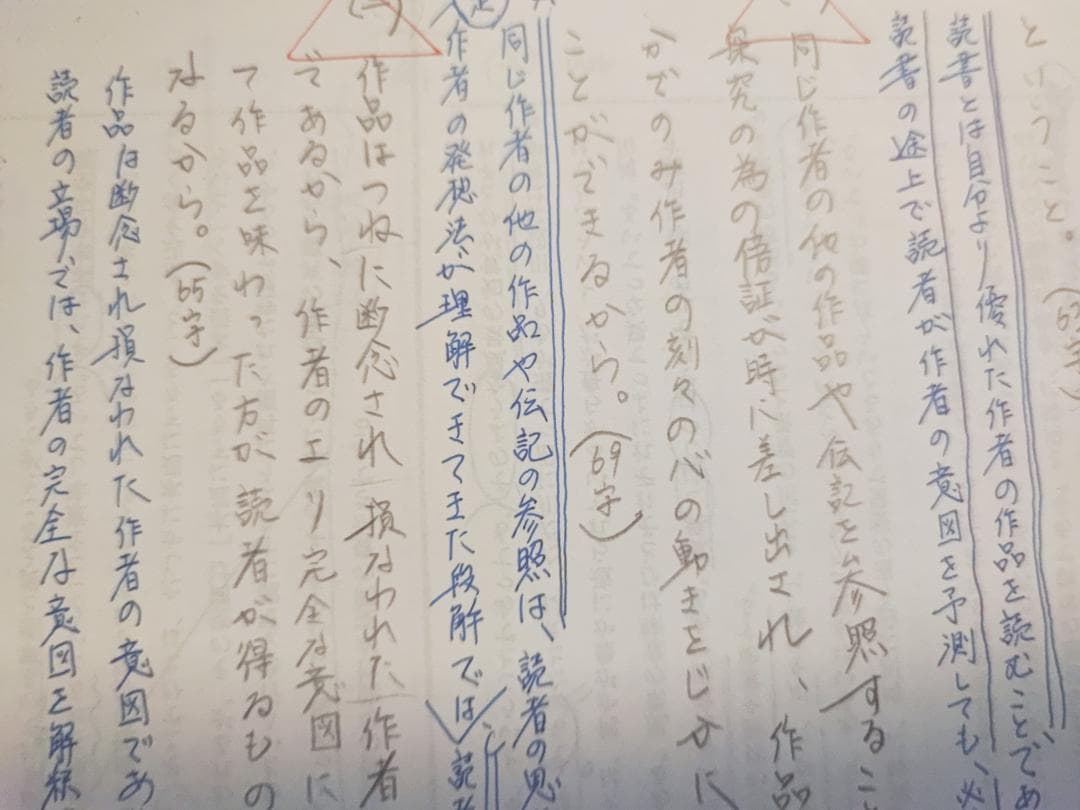 ということ。(6 字)
読書とは自分より優れた作者の作品を読むことであ
読書の途上で読者が作者の意図を予測しても、必
同じ作者の他の作品や伝記を参照するこ
探究の為の傍証が時に差し出され、作品
かでのみ作者の刻々の心の動きをじかに
ことができるから。(69字)
同じ作者の他の作品や伝記の参照は、読者の思
作者の発想法が理解できてきた段階では、読者
作品はつねに断念され損なわれた作者
であるから、作者のより完全な意図に
て作品を味わった方が読者が得るもの
なるから。(65字)
作品は断念され損なわれた作者の意図であ
読者の立場では、作者の完全な意図を解釈